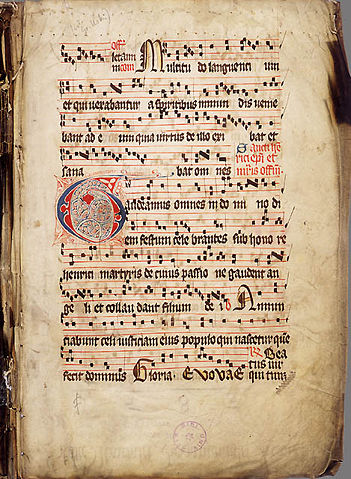 Multitu do languenci um
et qui vexabantur a spiritibus inmun dis venie
bant ad e um quia virtus de illo exi bat et
sana bat om nes
Gaudeamus omnes in do mi no di
em festum cele brantes sub hono re
henrici martyris de cuius passio ne gaudent an
ge li et collau dant filium de i Annun
ciabunt celi iusticiam eius populo qui nascetur que
fecit dominus Gloria Evovae qui tim